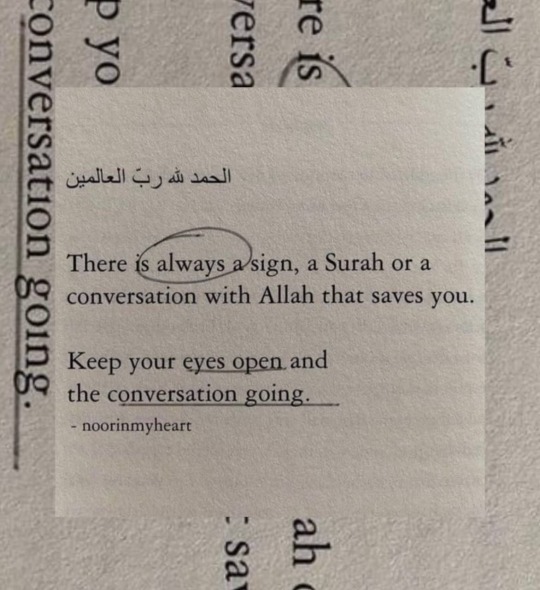 الحمد لله ربّ العالمين
There is always a sign, a Surah or a
conversation with Allah that saves you.
Keep your eyes open and
the conversation going.
- noorinmyheart
conversation going.
p yo
versa
re is
ah
sav